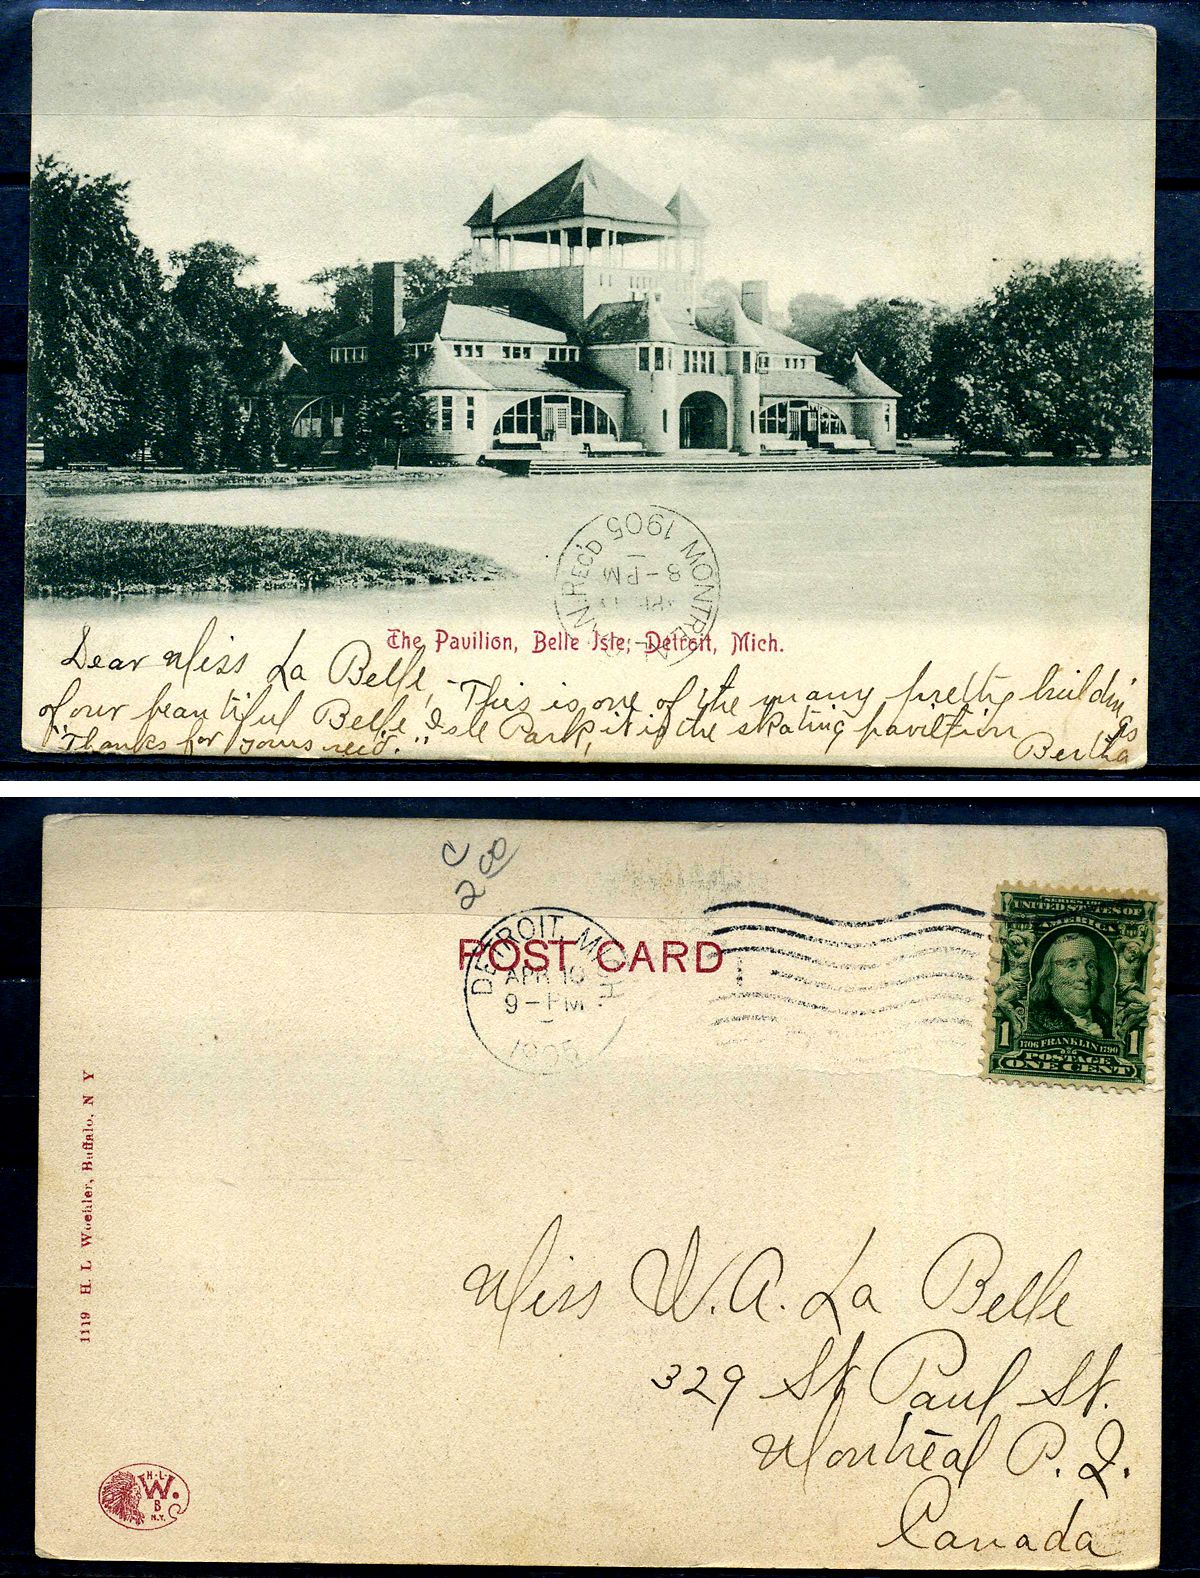 MONTREAL, CAN. REC'D
8 - PM
1905
The Pavilion, Belle Isle, Detroit, Mich.
Dear Miss La Belle, - This is one of the many pretty buildings
of our beautiful Belle Isle Park, it is the skating pavilion
"Thanks for yours rec'd." Bertha
C
2 00
DETROIT, MICH.
APR 10
9 - PM
1905
POST CARD
1
SERIES 1902
UNITED STATES OF
AMERICA
1706 FRANKLIN 1790
POSTAGE
1 ONE CENT 1
1119 H. L. Woehler, Buffalo, N Y
Miss W. A. La Belle
329 St Paul St.
Montréal P. Q.
Canada
H.L.
W.
B
N.Y.